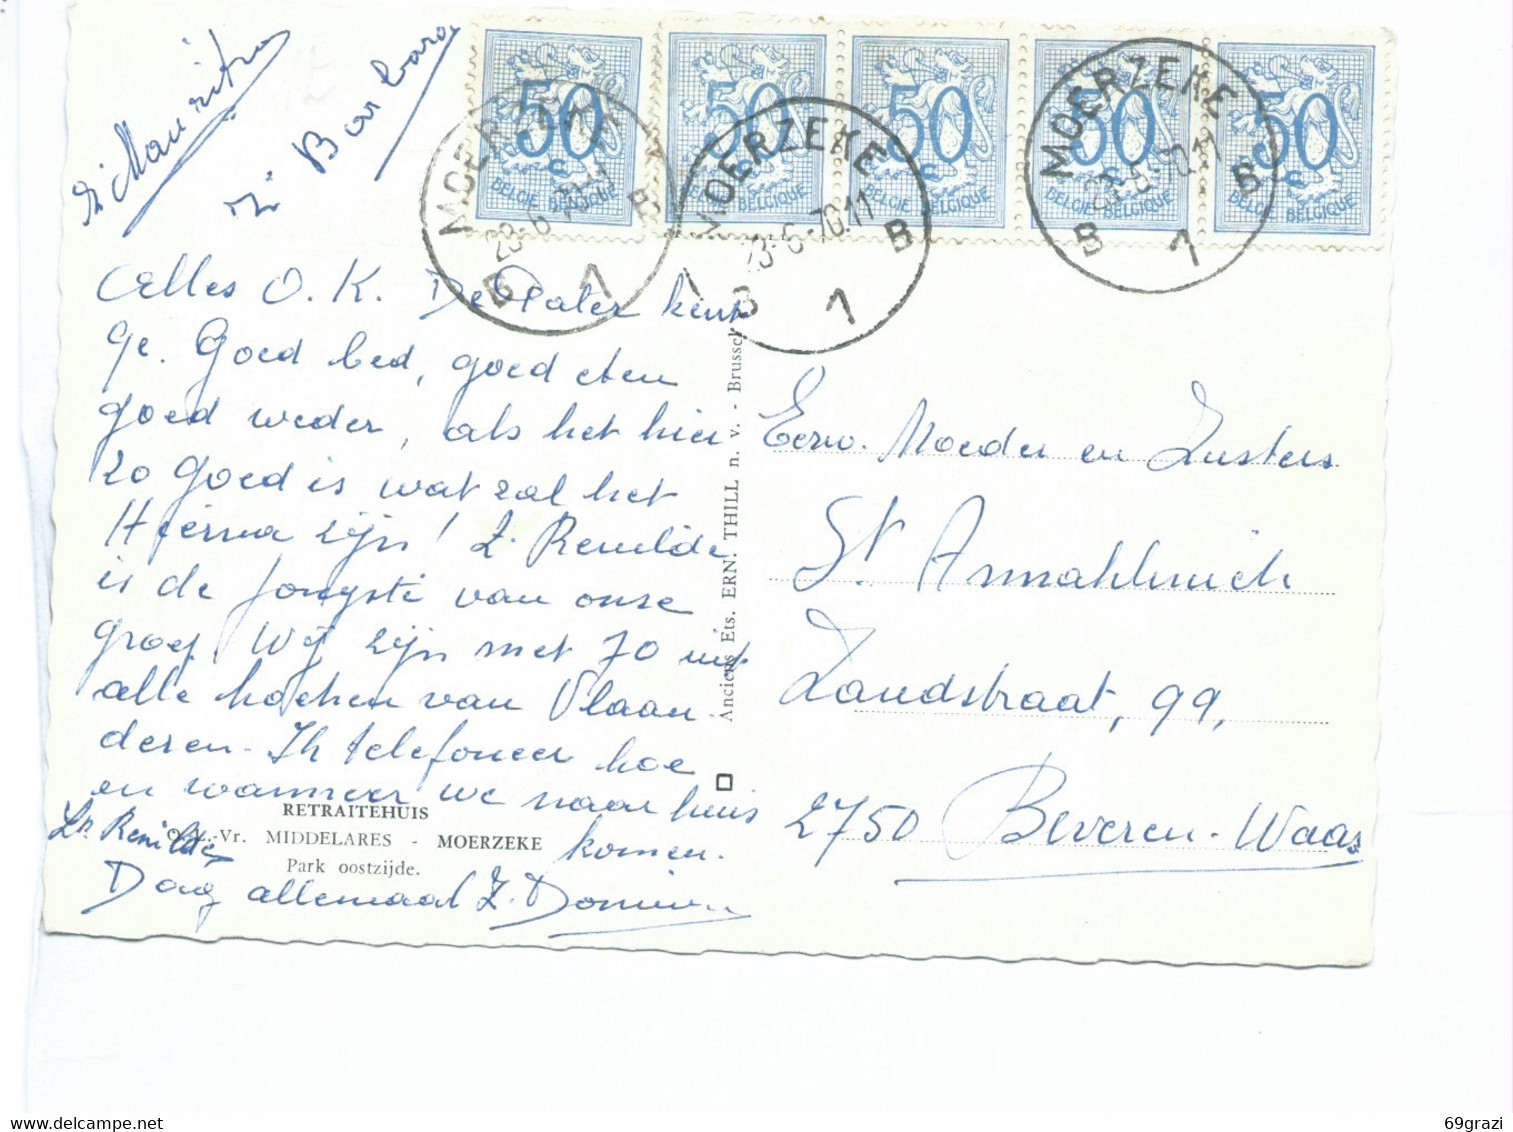 50 50 50 50 50
BELGIE-BELGIQUE BELGIE-BELGIQUE BELGIE-BELGIQUE BELGIE-BELGIQUE BELGIE-BELGIQUE
MOERZEKE
23-6-70
B 1 B
MOERZEKE
23-6-70.11
B 1 B
MOERZEKE
23-6-70.11
B 1 B
Zr Mauritia
Zr Barbara
Alles O.K. De Pater kent
ge. Goed bed, goed eten
goed weder, als het hier
zo goed is wat zal het
Hierna zijn! Z. Renilde
is de jongste van onze
groep. Wij zijn met 70 uit
alle hoeken van Vlaan
deren. Ik telefoneer hoe
en wanneer we naar huis
komen.
Zr. Renilde
RETRAITEHUIS
O.L.-Vr. MIDDELARES - MOERZEKE
Park oostzijde.
Dag allemaal Z.
Anciens Ets. ERN. THILL n. v. - Brussel
Eerw. Moeder en Zusters
St.
Zandstraat, 99,
2750 Beveren-Waas
69grazi